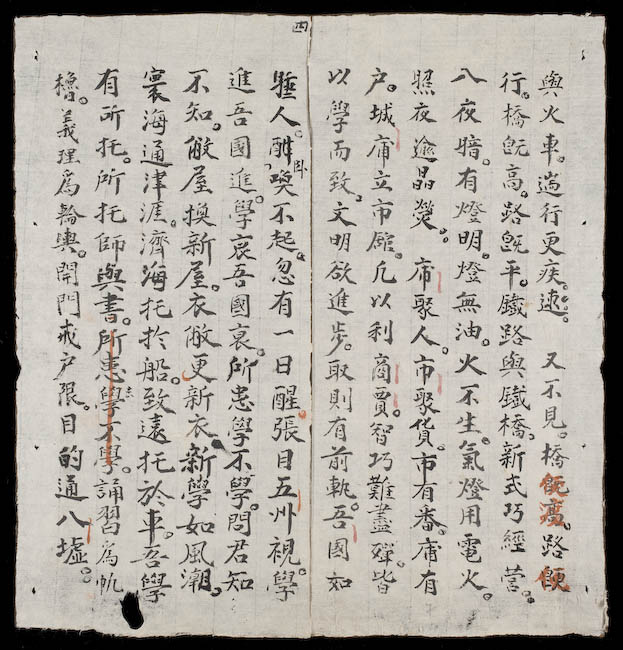 四
與火車。遄行更疾速。　又不見。橋既寬。路便
行。橋既高。路既平。鐵路與鐵橋。新式巧經營。
入夜暗。有燈明。燈無油。火不生。氣燈用電火。
照夜逾晶熒。　庯聚人。市聚貨。市有番。庯有
户。城庯立市館。凡以利商賈。智巧難盡殫。皆
以學而致。文明欲進步。取則有前軌。吾國如
睡人。酣卧不起。忽有一日醒。張目五州視。學
進吾國進。學衰吾國衰。所患學不學。問君知
不知。敝屋換新屋。衣敝更新衣。新學如風潮。
寰海通津涯。濟海托於船。致遠托於車。吾學
有所托。所托師與書。所患學不學。誦習爲帆
櫓。義理爲輪輿。開門戒户限。目的通八墟。